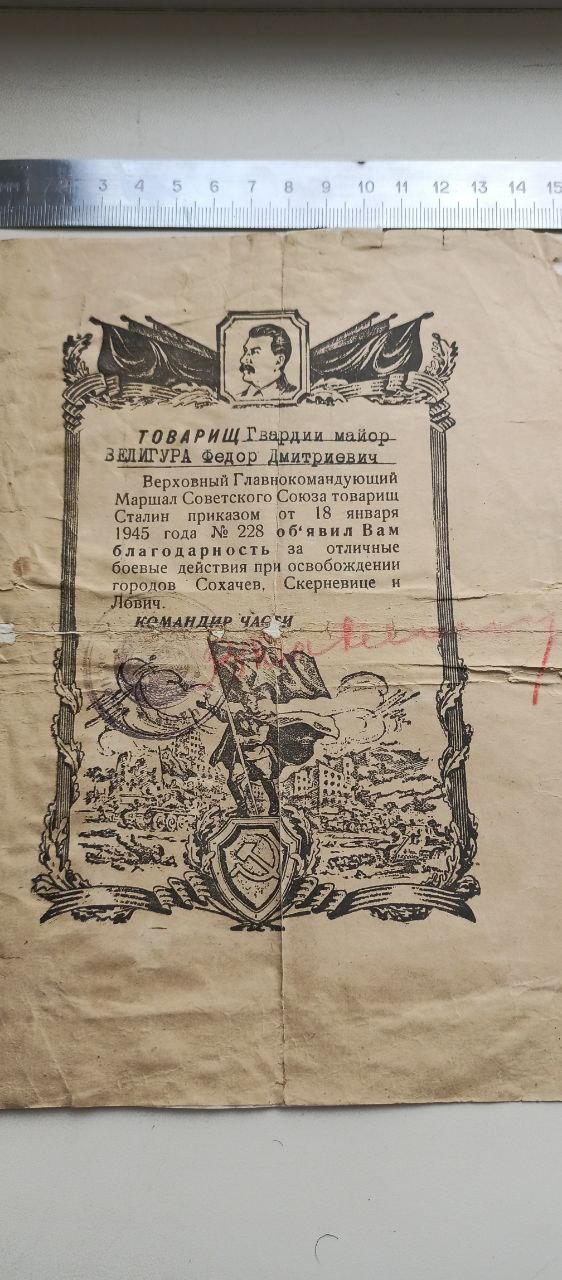 мм 1 2 3 4 5 6 7 8 9 10 11 12 13 14 15
ТОВАРИЩ Гвардии майор
ВЕЛИГУРА Федор Дмитриевич
Верховный Главнокомандующий
Маршал Советского Союза товарищ
Сталин приказом от 18 января
1945 года № 228 об‘явил Вам
благодарность за отличные
боевые действия при освобождении
городов Сохачев, Скерневице и
Лович.
КОМАНДИР ЧАСТИ